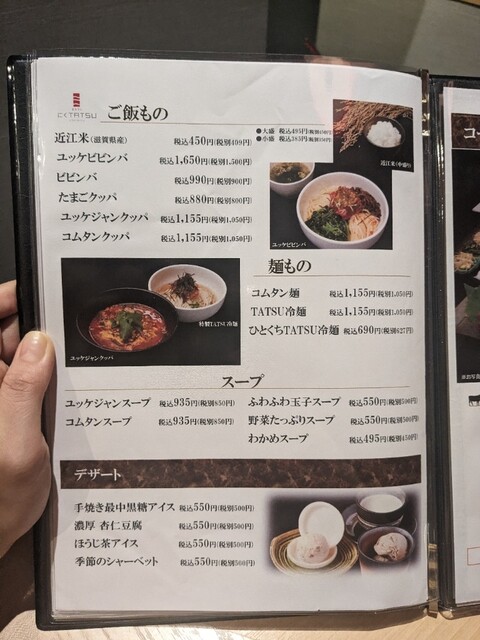 CくTATSU ご飯もの
近江米(滋賀県産) 税込450円(税別409円) ●大盛 税込495円(税別450円)
●小盛 税込385円(税別350円)
ユッケビビンバ 税込1,650円(税別1,500円)
ビビンバ 税込990円(税別900円)
たまごクッパ 税込880円(税別800円)
ユッケジャンクッパ 税込1,155円(税別1,050円)
コムタンクッパ 税込1,155円(税別1,050円)
近江米(中盛り)
ユッケビビンバ
特製TATSU冷麺
ユッケジャンクッパ
麺もの
コムタン麺 税込1,155円(税別1,050円)
TATSU冷麺 税込1,155円(税別1,050円)
ひとくちTATSU冷麺 税込690円(税別627円)
スープ
ユッケジャンスープ 税込935円(税別850円)
コムタンスープ 税込935円(税別850円)
ふわふわ玉子スープ 税込550円(税別500円)
野菜たっぷりスープ 税込550円(税別500円)
わかめスープ 税込495円(税別450円)
デザート
手焼き最中黒糖アイス 税込550円(税別500円)
濃厚 杏仁豆腐 税込550円(税別500円)
ほうじ茶アイス 税込550円(税別500円)
季節のシャーベット 税込550円(税別500円)
コー